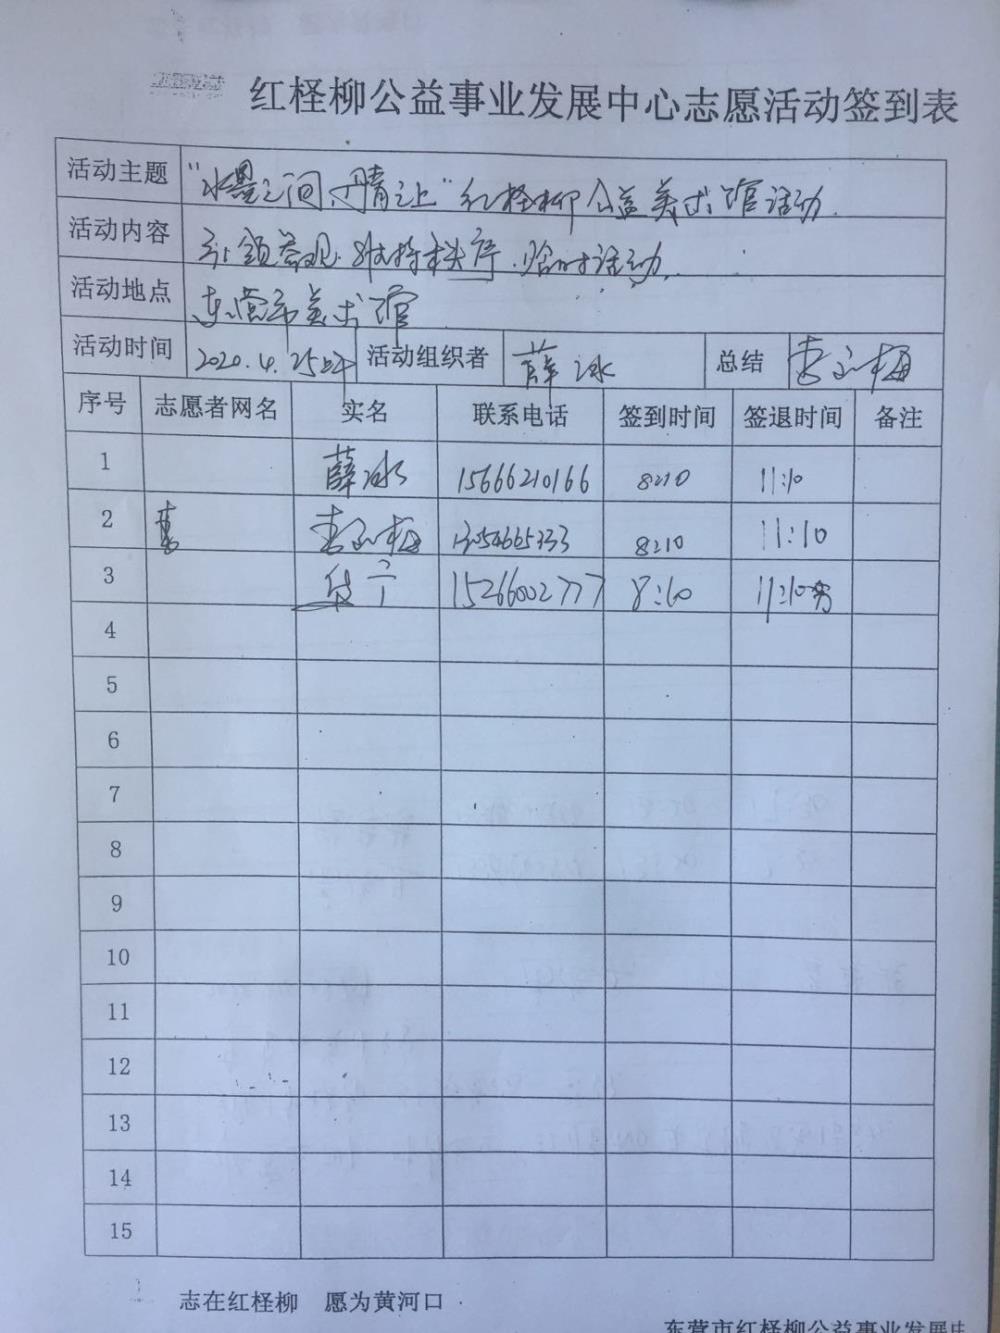 红柽柳公益事业发展中心志愿活动签到表
活动主题 "水墨之间、丹青之上"红柽柳公益美术馆活动
活动内容 引领参观、维持秩序、临时活动
活动地点 东营市美术馆
活动时间 2020.4.25 活动组织者 薛冰 总结
序号 志愿者网名 实名 联系电话 签到时间 签退时间 备注
1 薛冰 15666210166 8:10 11:10
2 8:10 11:10
3 15266002777 8:10 11:10
4
5
6
7
8
9
10
11
12
13
14
15
志在红柽柳 愿为黄河口
东营市红柽柳公益事业发展中